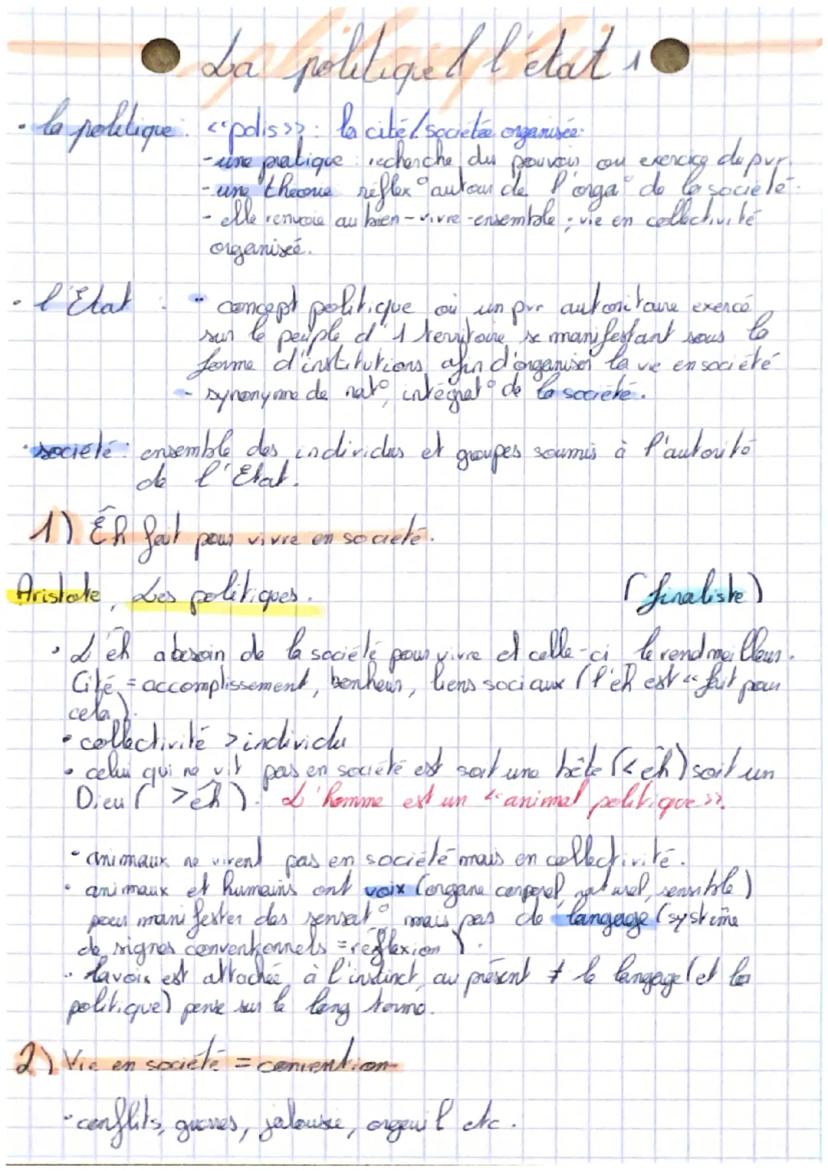 La politique & l'état 1
• la politique : «polis» : la cité/société organisée.
- une pratique : recherche du pouvoir ou exercice du pvr.
- une théorie réflex° autour de l'orga° de la société.
- elle renvoie au bien-vivre-ensemble ; vie en collectivité
organisée.
• l'Etat : - concept politique où un pvr autoritaire exercé
sur le peuple d'1 territoire se manifestant sous la
forme d'institutions afin d'organiser la vie en société
- synonyme de nat°, intégrat° de la société.
• société : ensemble des individus et groupes soumis à l'autorité
de l'Etat.
1) Êh fait pour vivre en société.
Aristote, Les politiques. (finaliste)
• L'êh a besoin de la société pour vivre et celle-ci le rend meilleur.
Cité = accomplissement, bonheur, liens sociaux (l'êh est «fait pour
cela).
• collectivité > individu
• celui qui ne vit pas en société est soit une bête (< êh) soit un
Dieu ( > êh ). L'homme est un «animal politique».
• animaux ne vivent pas en société mais en collectivité.
• animaux et humains ont voix (organe corporel, naturel, sensible)
pour manifester des sensat° mais pas de langage (système
de signes conventionnels = réflexion ).
• la voix est attachée à l'instinct, au présent ≠ le langage (et la
politique) pense sur le long terme.
2) Vie en société = convention
• conflits, guerres, jalousie, orgeuil etc.